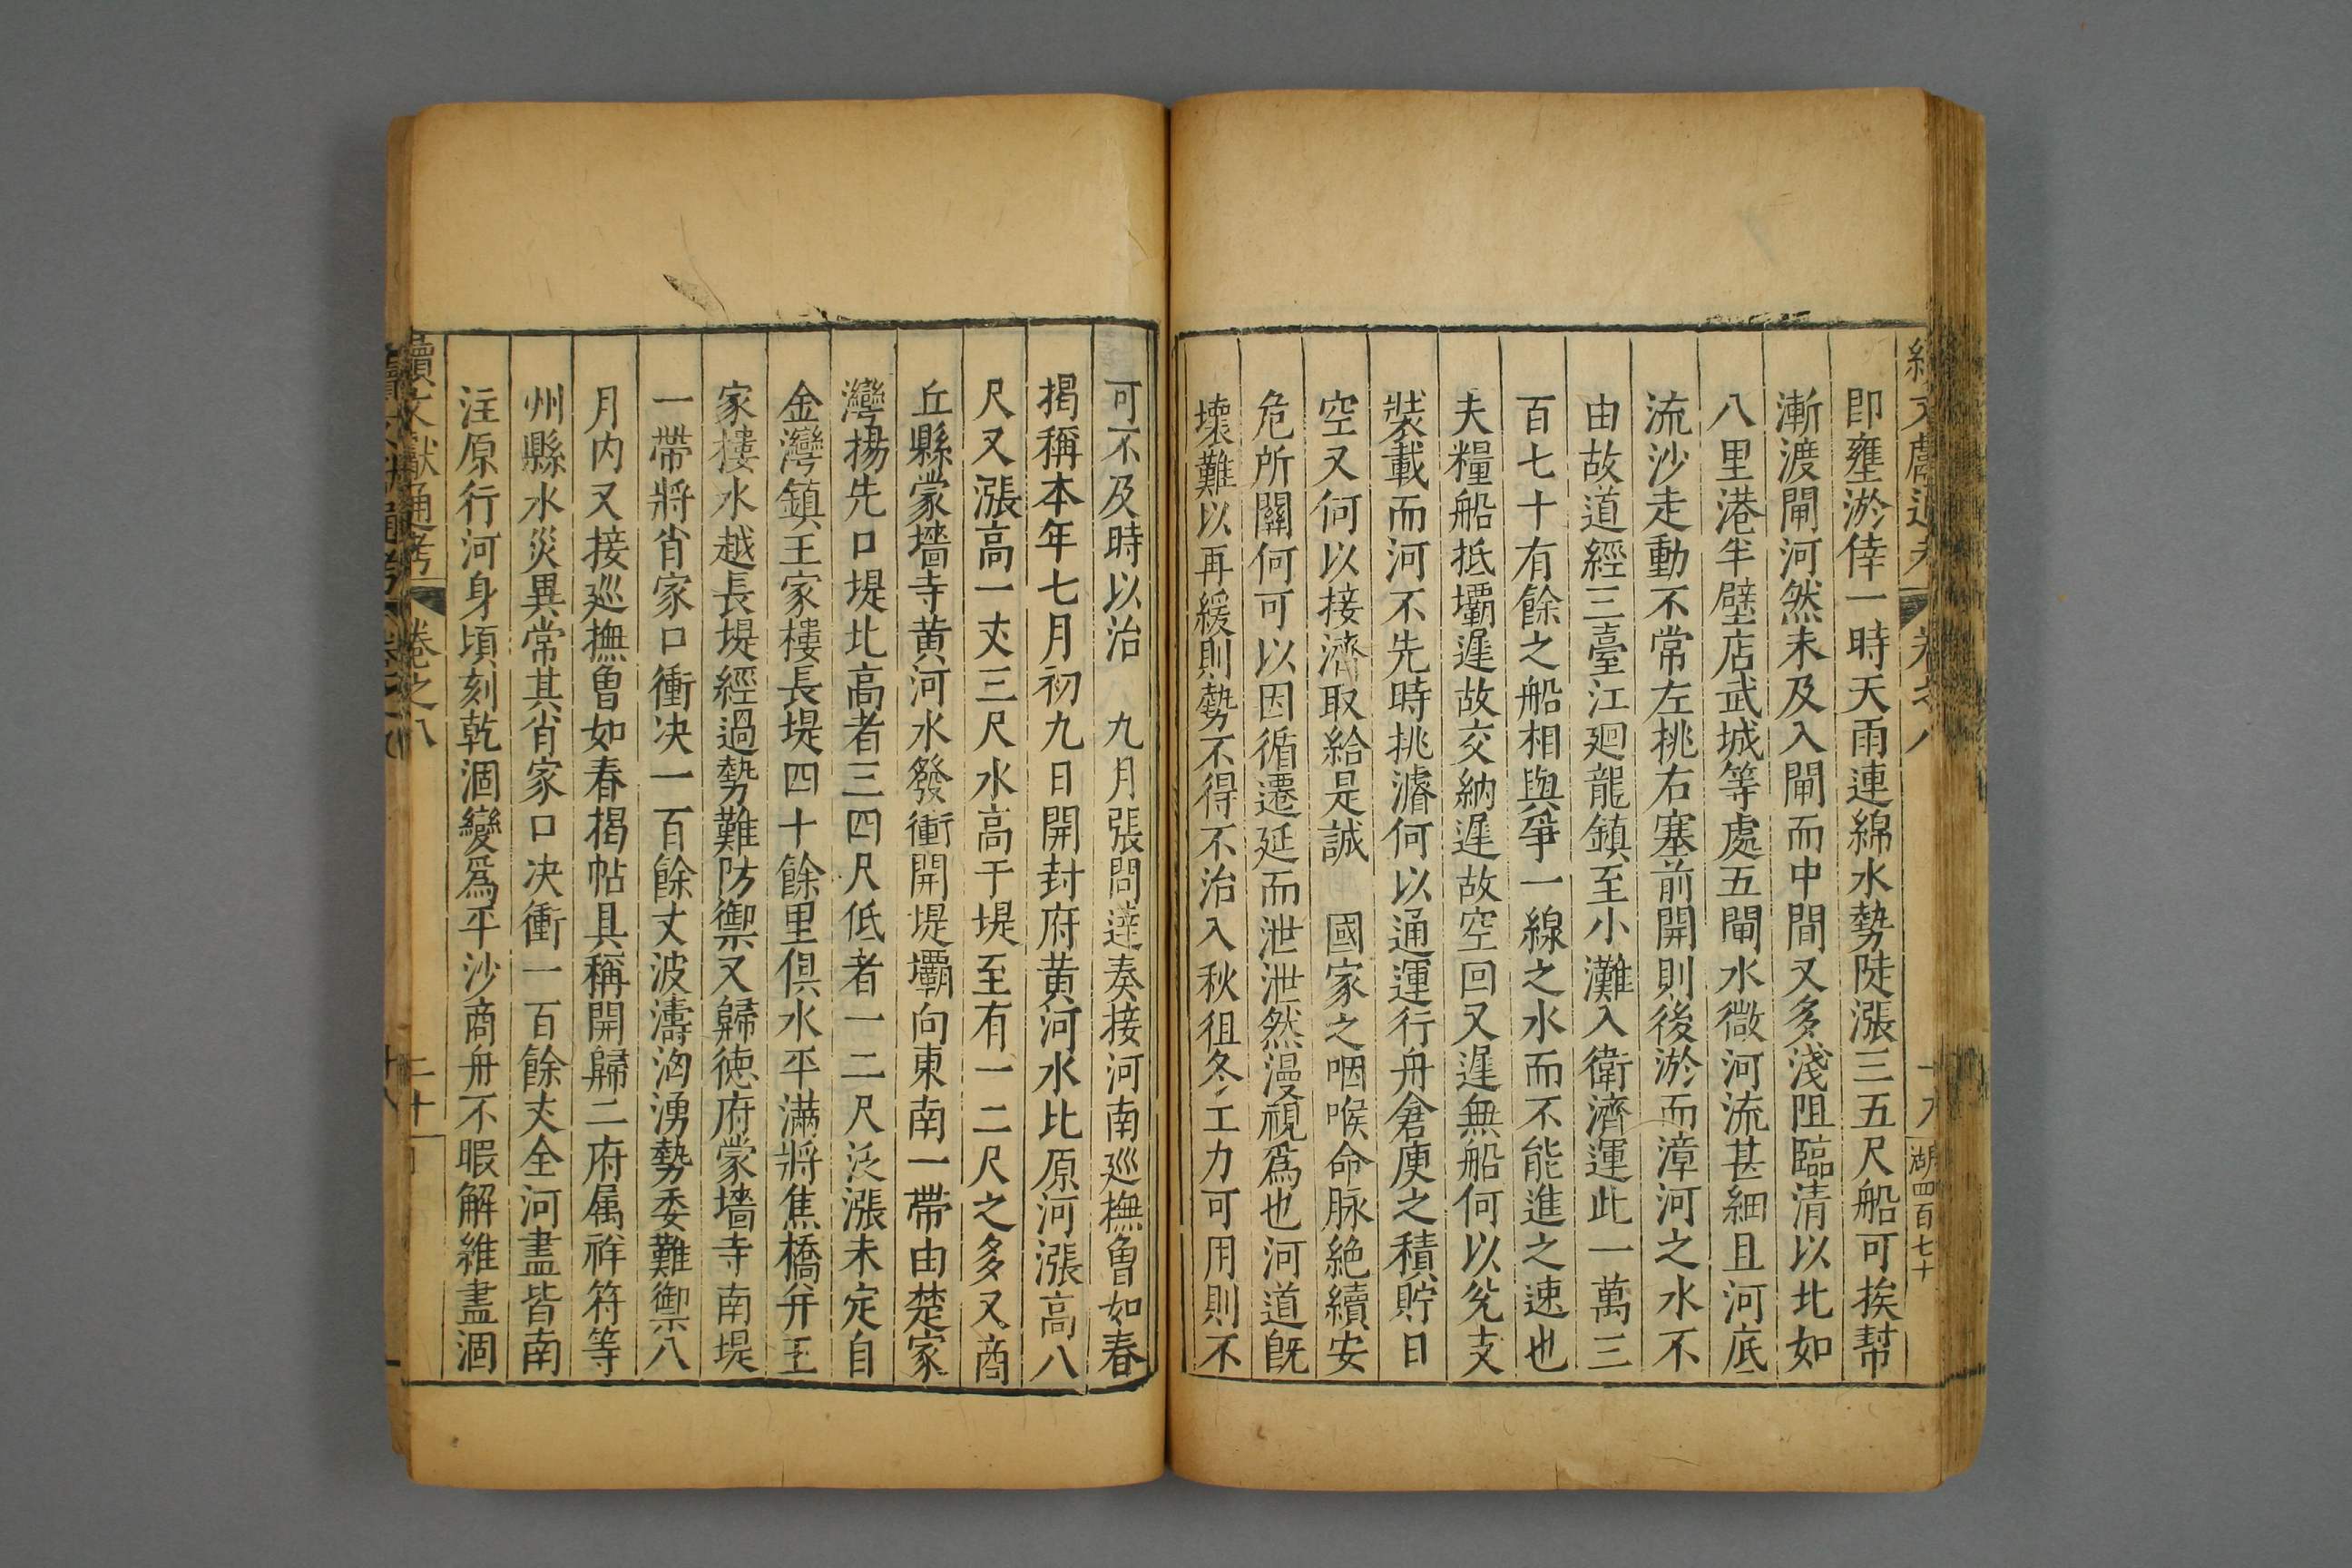 卷之八
湖四百七十
即壅淤倖一時天雨連綿水勢陡漲三五尺船可挨幇
漸渡閘河然未及入閘而中間又多淺阻臨清以北如
八里港半壁店武城等處五閘水微河流甚細且河底
流沙走動不常左挑右塞前開則後淤而漳河之水不
由故道經三臺江廻龍鎮至小灘入衛濟運此一萬三
百七十有餘之船相與爭一線之水而不能進之速也
夫糧船抵壩遲故交納遲故空回又遲無船何以兊支
裝載而河不先時挑濬何以通運行舟倉庾之積貯日
空又何以接濟取給是誠 國家之咽喉命脉絶續安
危所關何可以因循遷延而泄泄然漫視爲也河道旣
壞難以再緩則勢不得不治入秋徂冬工力可用則不
可不及時以治 九月張問達奏接河南巡撫曾如春
揭稱本年七月初九日開封府黄河水比原河漲高八
尺又漲高一丈三尺水高于堤至有一二尺之多又商
丘縣蒙墻寺黄河水發衝開堤壩向東南一帶由楚家
灣揚先口堤北高者三四尺低者一二尺泛漲未定自
金灣鎮王家樓長堤四十餘里俱水平滿將焦橋并王
家樓水越長堤經過勢難防禦又歸徳府蒙墻寺南堤
一帶將肖家口衝决一百餘丈波濤洶湧勢委難禦八
月内又接巡撫曾如春揭帖具稱開歸二府属祥符等
州縣水災異常其肖家口决衝一百餘丈全河盡皆南
注原行河身頃刻乾涸變爲平沙商舟不暇解維盡涸
續文獻通考 卷之八 二十